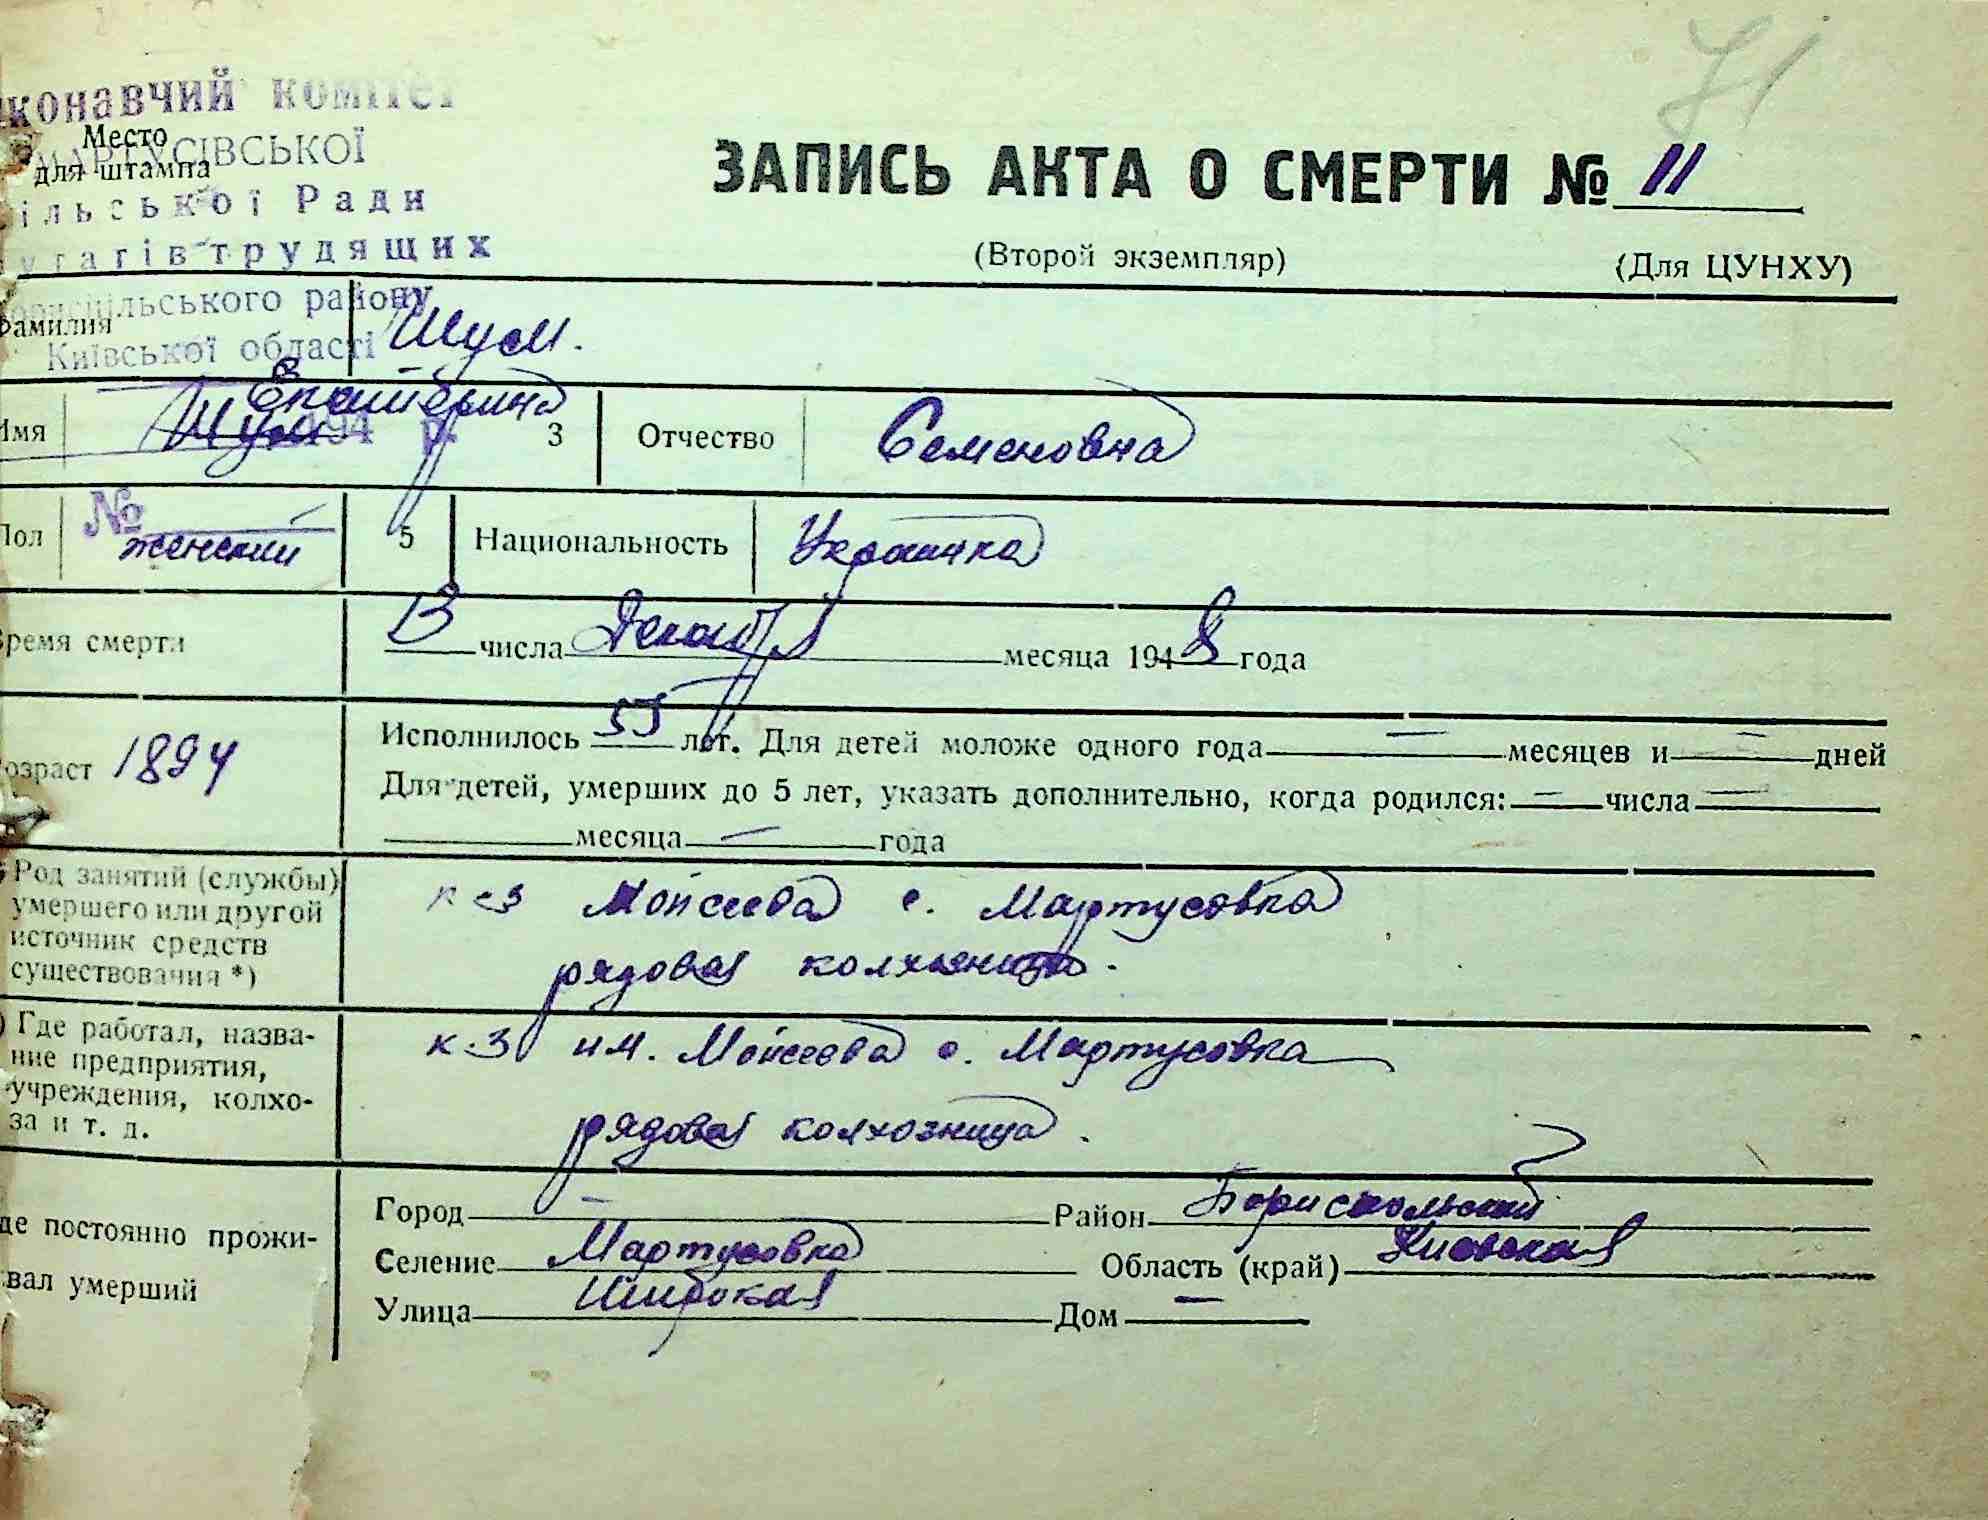 71
конавчий комітет
Место
МАРТУСІВСЬКОЇ
для штампа
ільської Ради
утатів трудящих
ориспільського району
Київської області
194 р.
№
ЗАПИСЬ АКТА О СМЕРТИ № 11
(Второй экземпляр) (Для ЦУНХУ)
Фамилия Шум.
Екатерина
Имя Шум 3 Отчество Семеновна
Пол женский 5 Национальность Украинка
Время смерти 13 числа Декабря месяца 1948 года
Возраст 1894 Исполнилось 55 лет. Для детей моложе одного года — месяцев и — дней
Для детей, умерших до 5 лет, указать дополнительно, когда родился: — числа —
месяца — года
Род занятий (службы)
умершего или другой
источник средств
существования *)
к-з Мойсеева с. Мартусовка
рядовая колхозница.
) Где работал, назва-
ние предприятия,
учреждения, колхо-
за и т. д.
к-з им. Мойсеева с. Мартусовка
рядовая колхозница.
де постоянно прожи-
вал умерший
Город — Район Бориспольский
Селение Мартусовка Область (край) Киевская
Улица Широкая Дом —